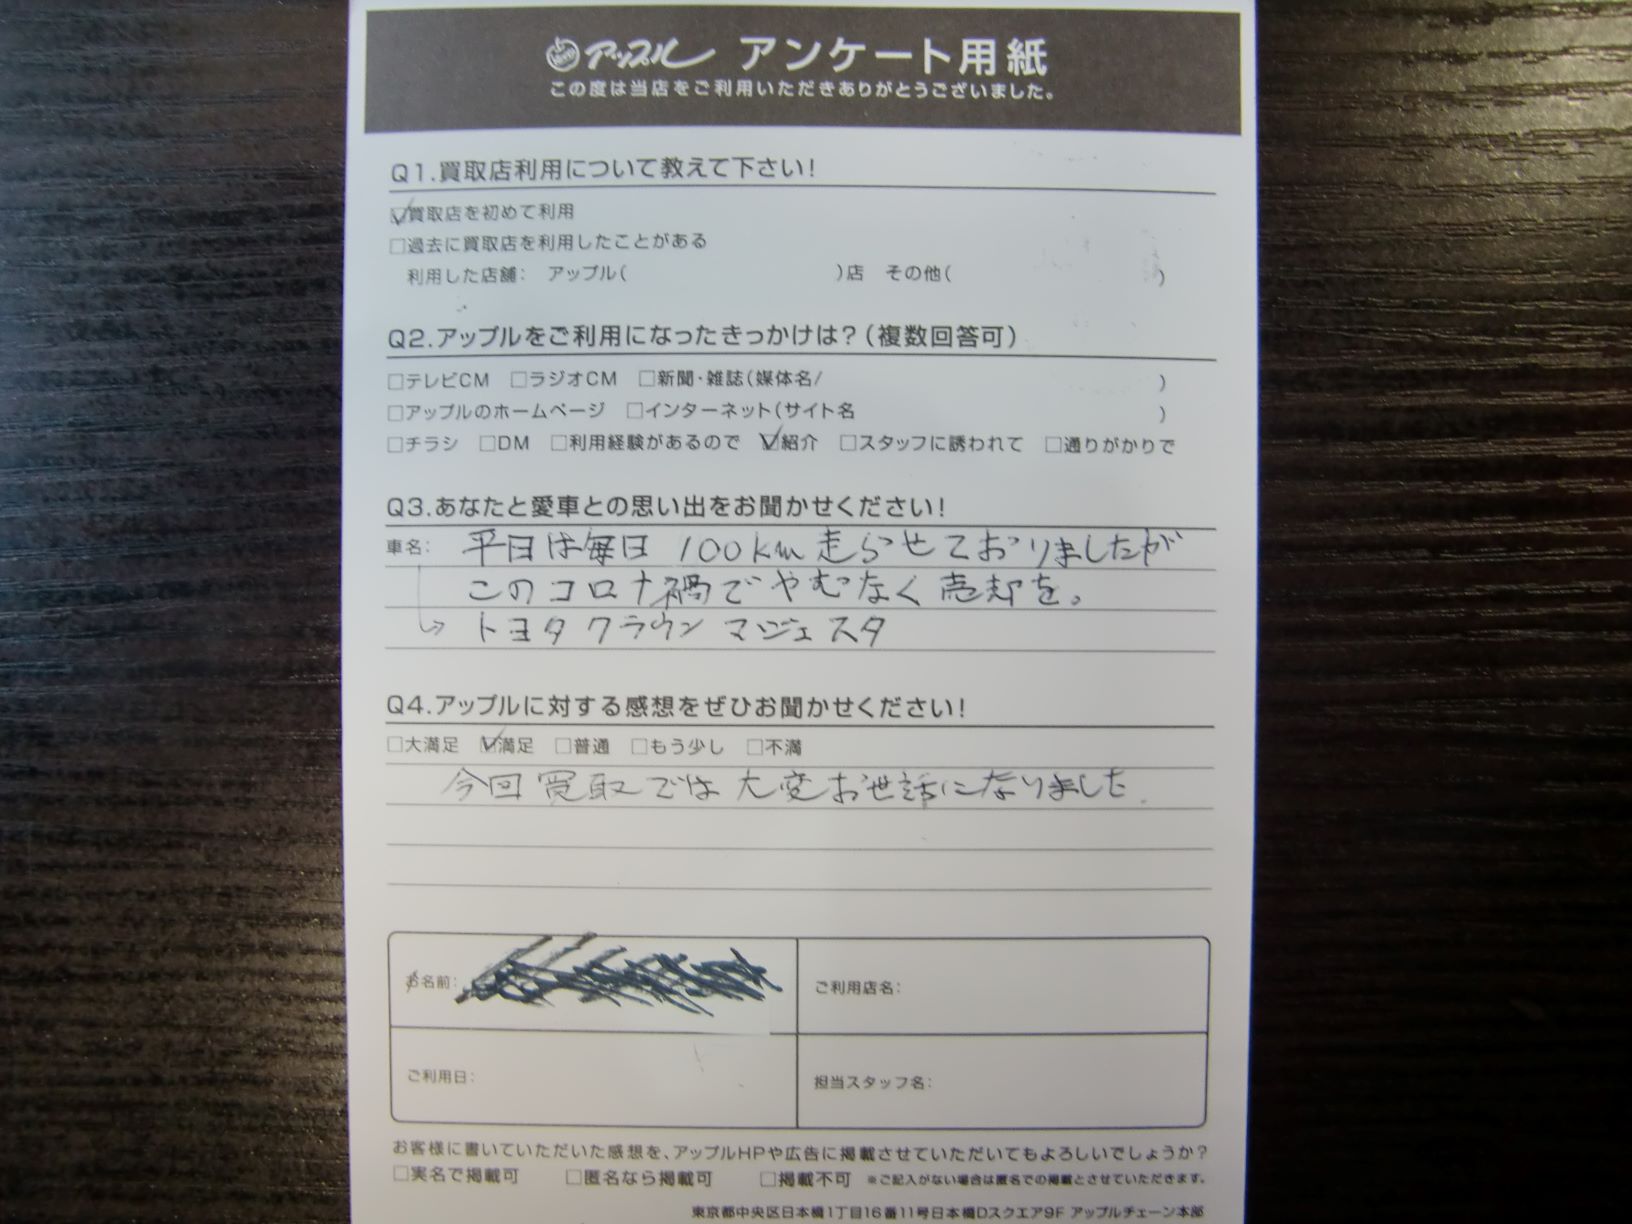 アップル アンケート用紙
この度は当店をご利用いただきありがとうございました。
Q1.買取店利用について教えて下さい!
☑買取店を初めて利用
□過去に買取店を利用したことがある
利用した店舗: アップル( )店 その他( )
Q2.アップルをご利用になったきっかけは?(複数回答可)
□テレビCM □ラジオCM □新聞・雑誌(媒体名/ )
□アップルのホームページ □インターネット(サイト名 )
□チラシ □DM □利用経験があるので ☑紹介 □スタッフに誘われて □通りがかりで
Q3.あなたと愛車との思い出をお聞かせください!
車名: 平日は毎日 100km走らせておりましたが
このコロナ禍でやむなく売却を。
→ トヨタ クラウン マジェスタ
Q4.アップルに対する感想をぜひお聞かせください!
□大満足 ☑満足 □普通 □もう少し □不満
今回買取では大変お世話になりました.
お名前:
ご利用店名:
ご利用日:
担当スタッフ名:
お客様に書いていただいた感想を、アップルHPや広告に掲載させていただいてもよろしいでしょうか?
□実名で掲載可 □匿名なら掲載可 □掲載不可 ※ご記入がない場合は匿名での掲載とさせていただきます。
東京都中央区日本橋1丁目16番11号日本橋Dスクエア9F アップルチェーン本部